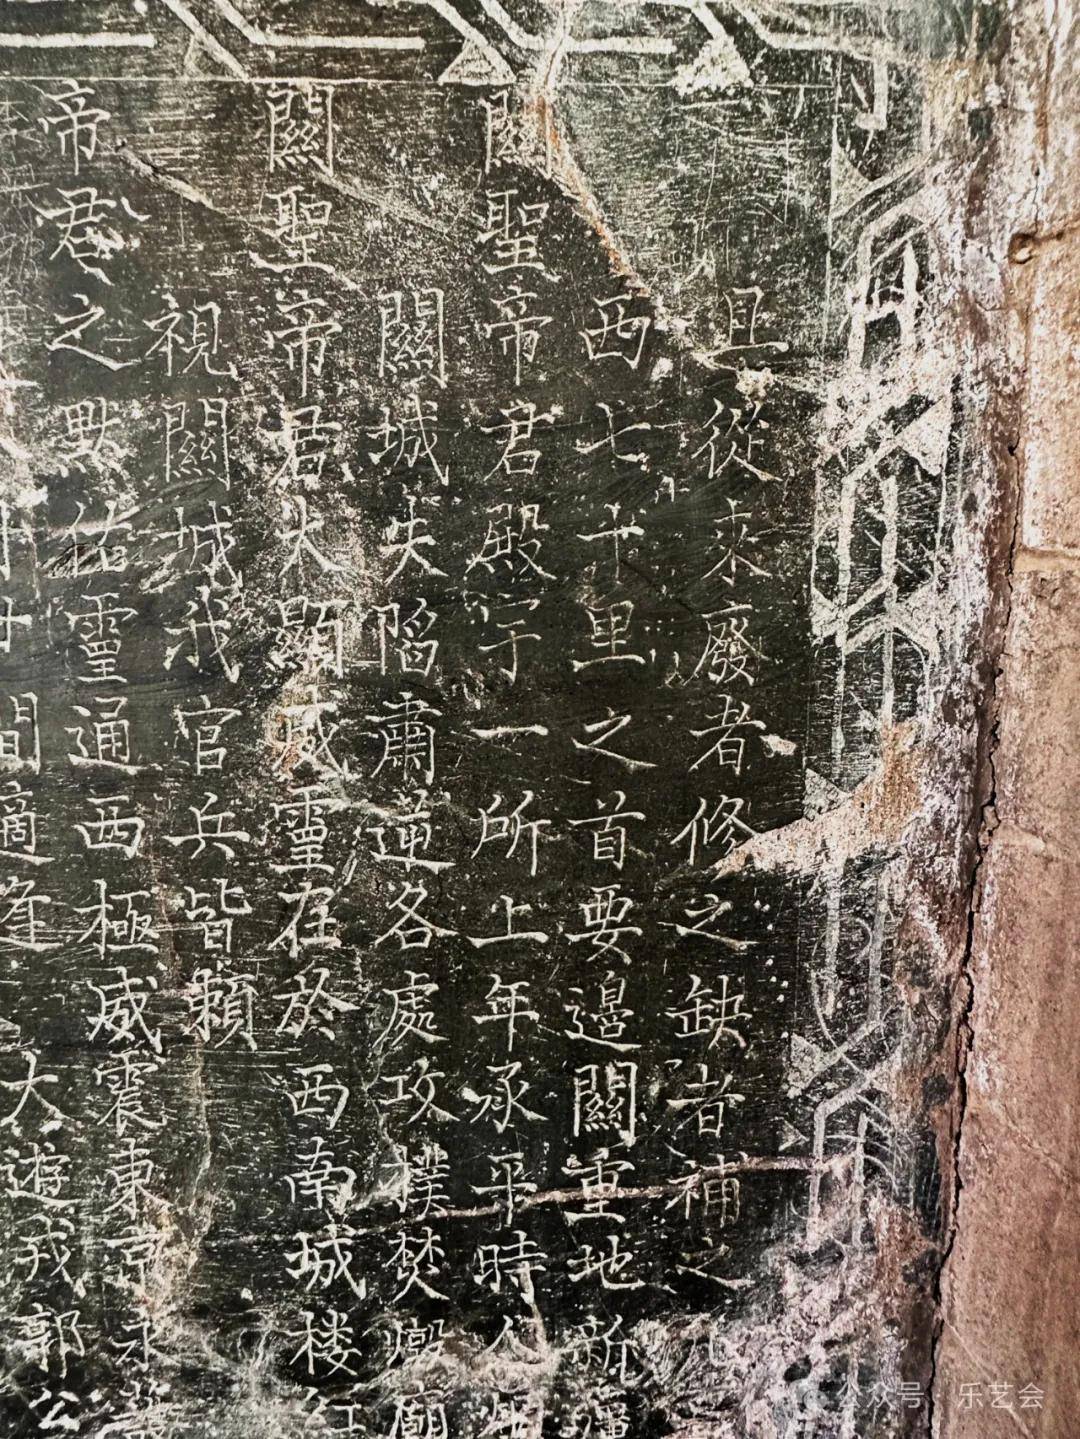 且從來廢者修之缺者補之
西七十里之首要邊關重地新疆
關聖帝君殿宇一所上年承平時
關城失陷肅蓮各處攻撲焚燬廟
關聖帝君大顯威靈在於西南城楼紅
視關城我官兵皆賴
帝君之默佑靈通西極威震東京永護
間適逢大遊我郭公
公众号·乐艺会